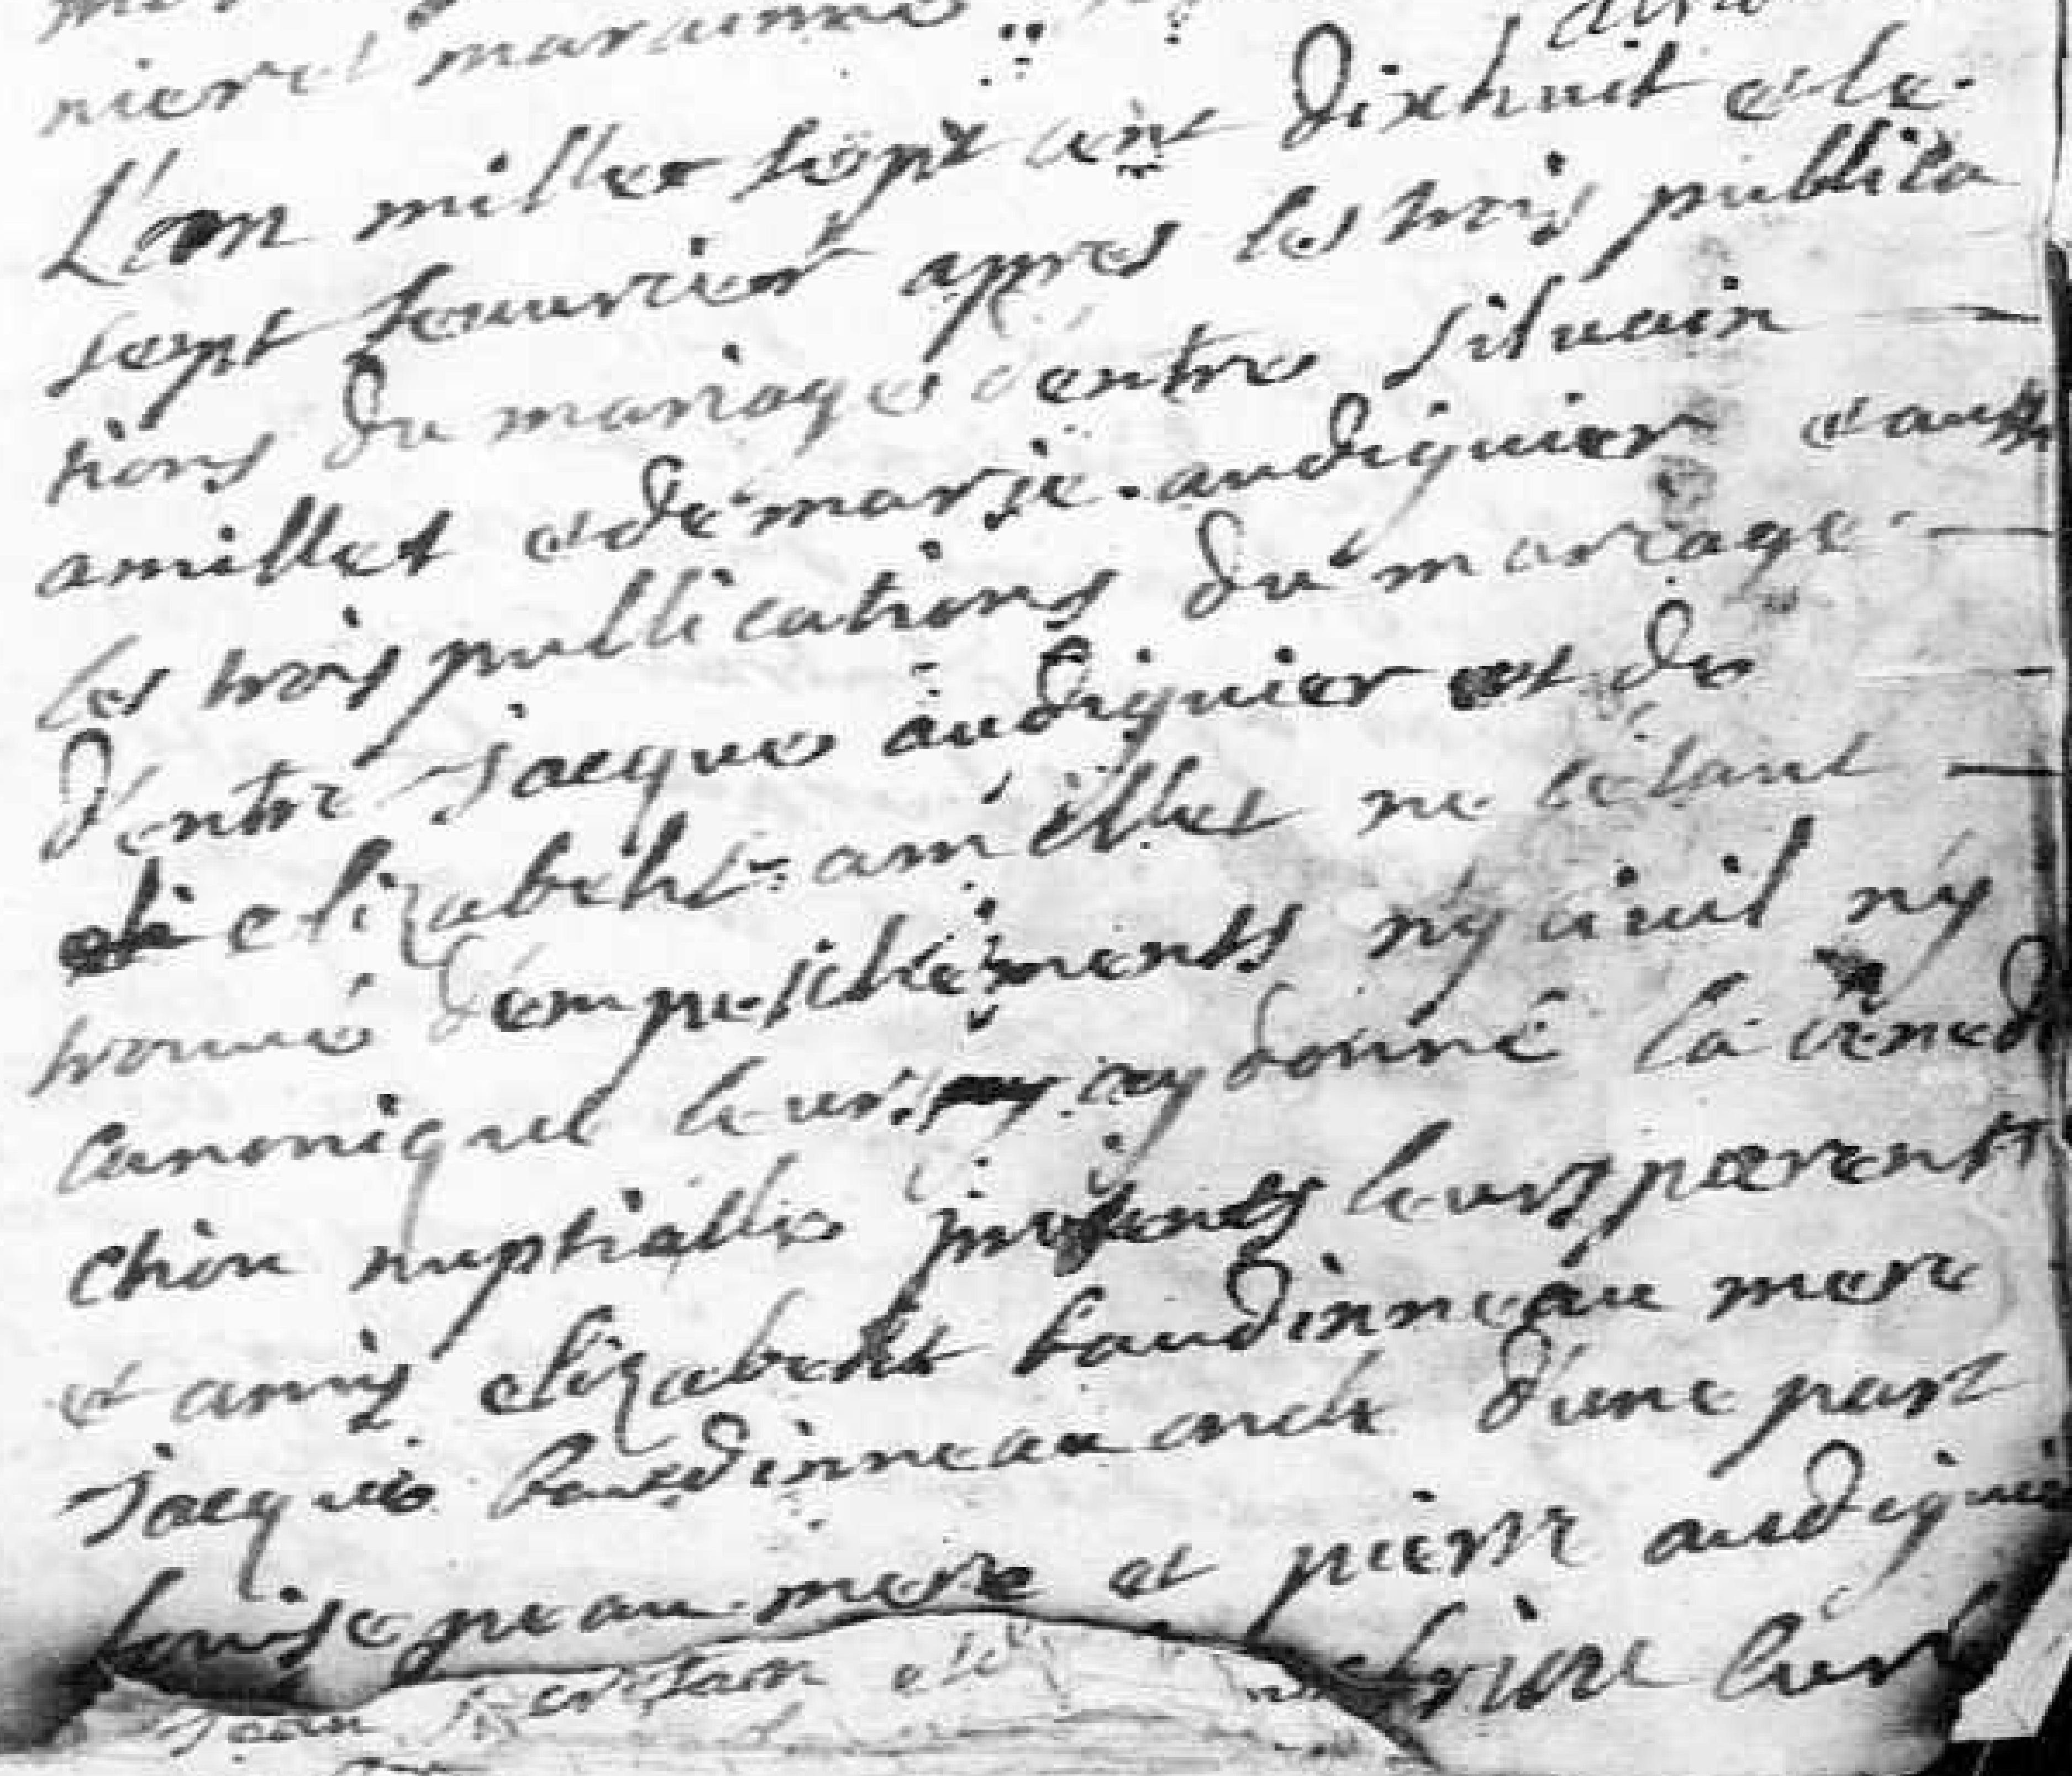 nier et marainne
L'an mille sept cent dixhuit et le
sept feuvrier apres les trois publica
tions du mariage d'entre silvain
amillet et de marie audiguier et aussi
les trois publications du mariage
d'entre jacques audiguier et de
elizabeht amillet ne s'etant
trouvé d'empeschements ny civil ny
canonique leurs ay donné la benedi
ction nuptialle presents leurs parents
et amis elizabeht baudinneau mere
jacques baudinneau oncle d'une part
louise peau mere et pierre audiguier
frere
jean